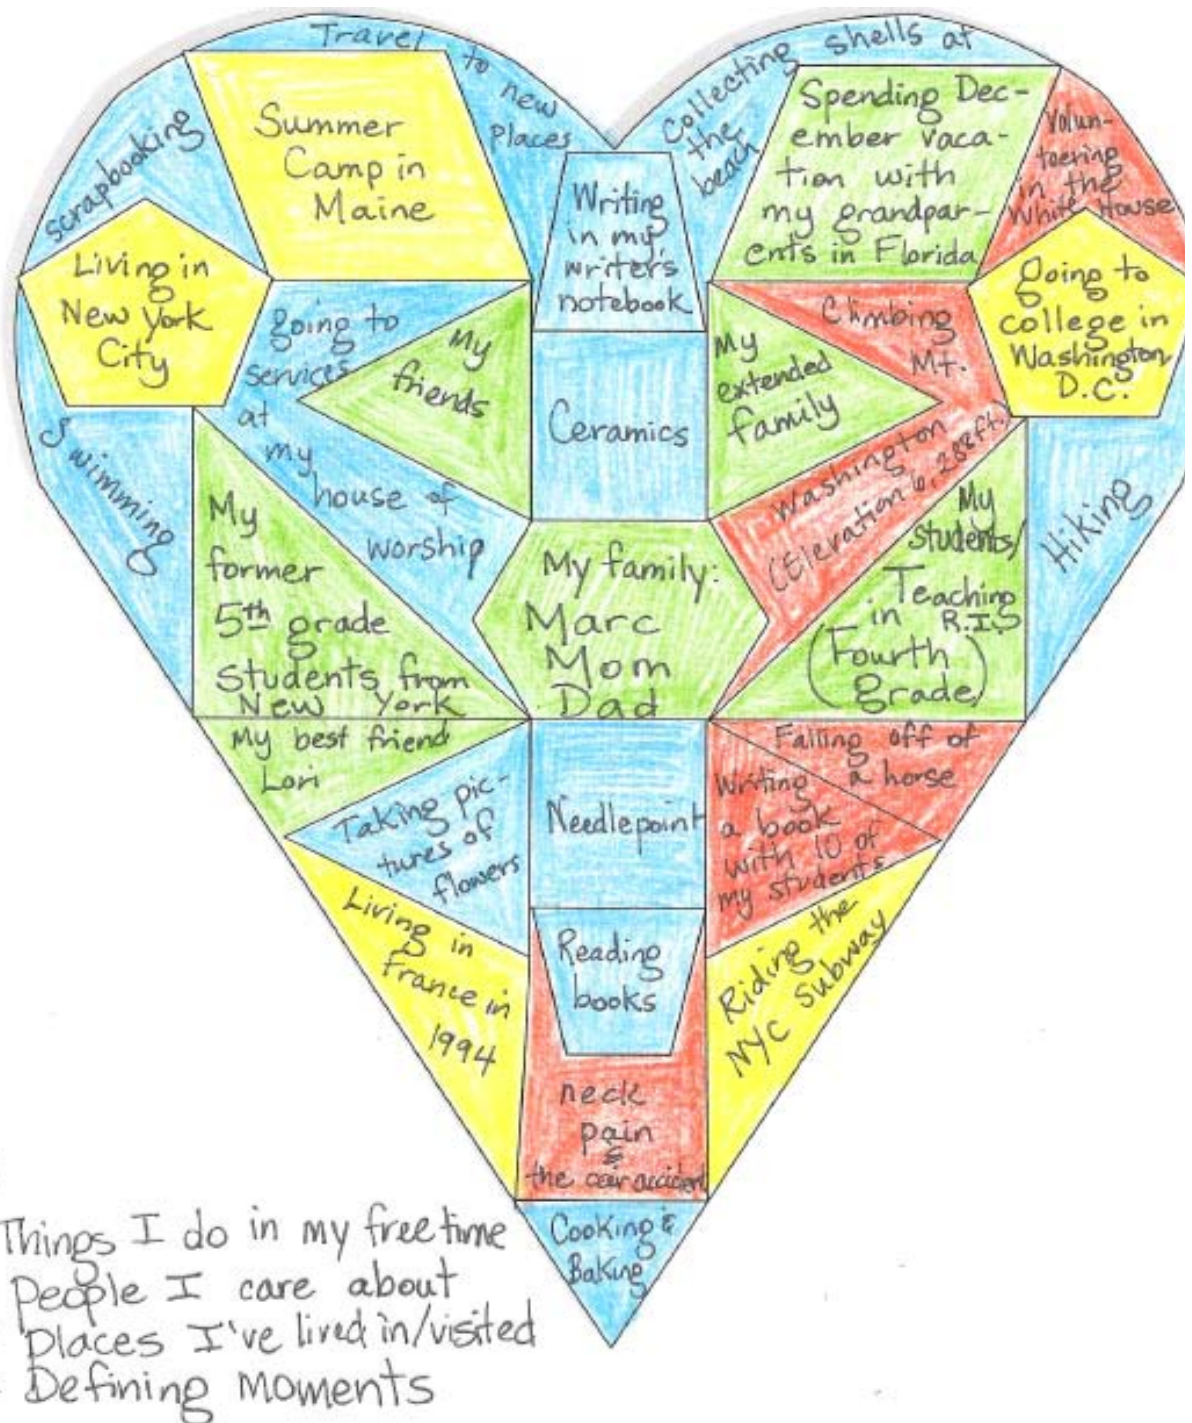 Travel
to
new
Places
Collecting shells at
the
beach
scrapbooking
Summer
Camp in
Maine
Writing
in my
writer's
notebook
Spending Dec-
ember vaca-
tion with
my grandpar-
ents in Florida
Volun-
teering
in the
White House
Living in
New York
City
going to
services
at
my
house of
worship
My
friends
Ceramics
My
extended
family
Climbing
Mt.
Washington
(Elevation 6,288ft.)
Going to
college in
Washington,
D.C.
Swimming
My
former
5th grade
students from
New York
My family:
Marc
Mom
Dad
My
students/
Teaching
in R.I.
(Fourth
grade)
Hiking
My best friend
Lori
Taking pic-
tures of
flowers
Needlepoint
Falling off of
a horse
Writing
a book
with 10 of
my students
Living in
France in
1994
Reading
books
Riding the
NYC Subway
neck
pain
&
the car accident
Cooking &
Baking
Things I do in my free time
People I care about
Places I've lived in/visited
Defining Moments